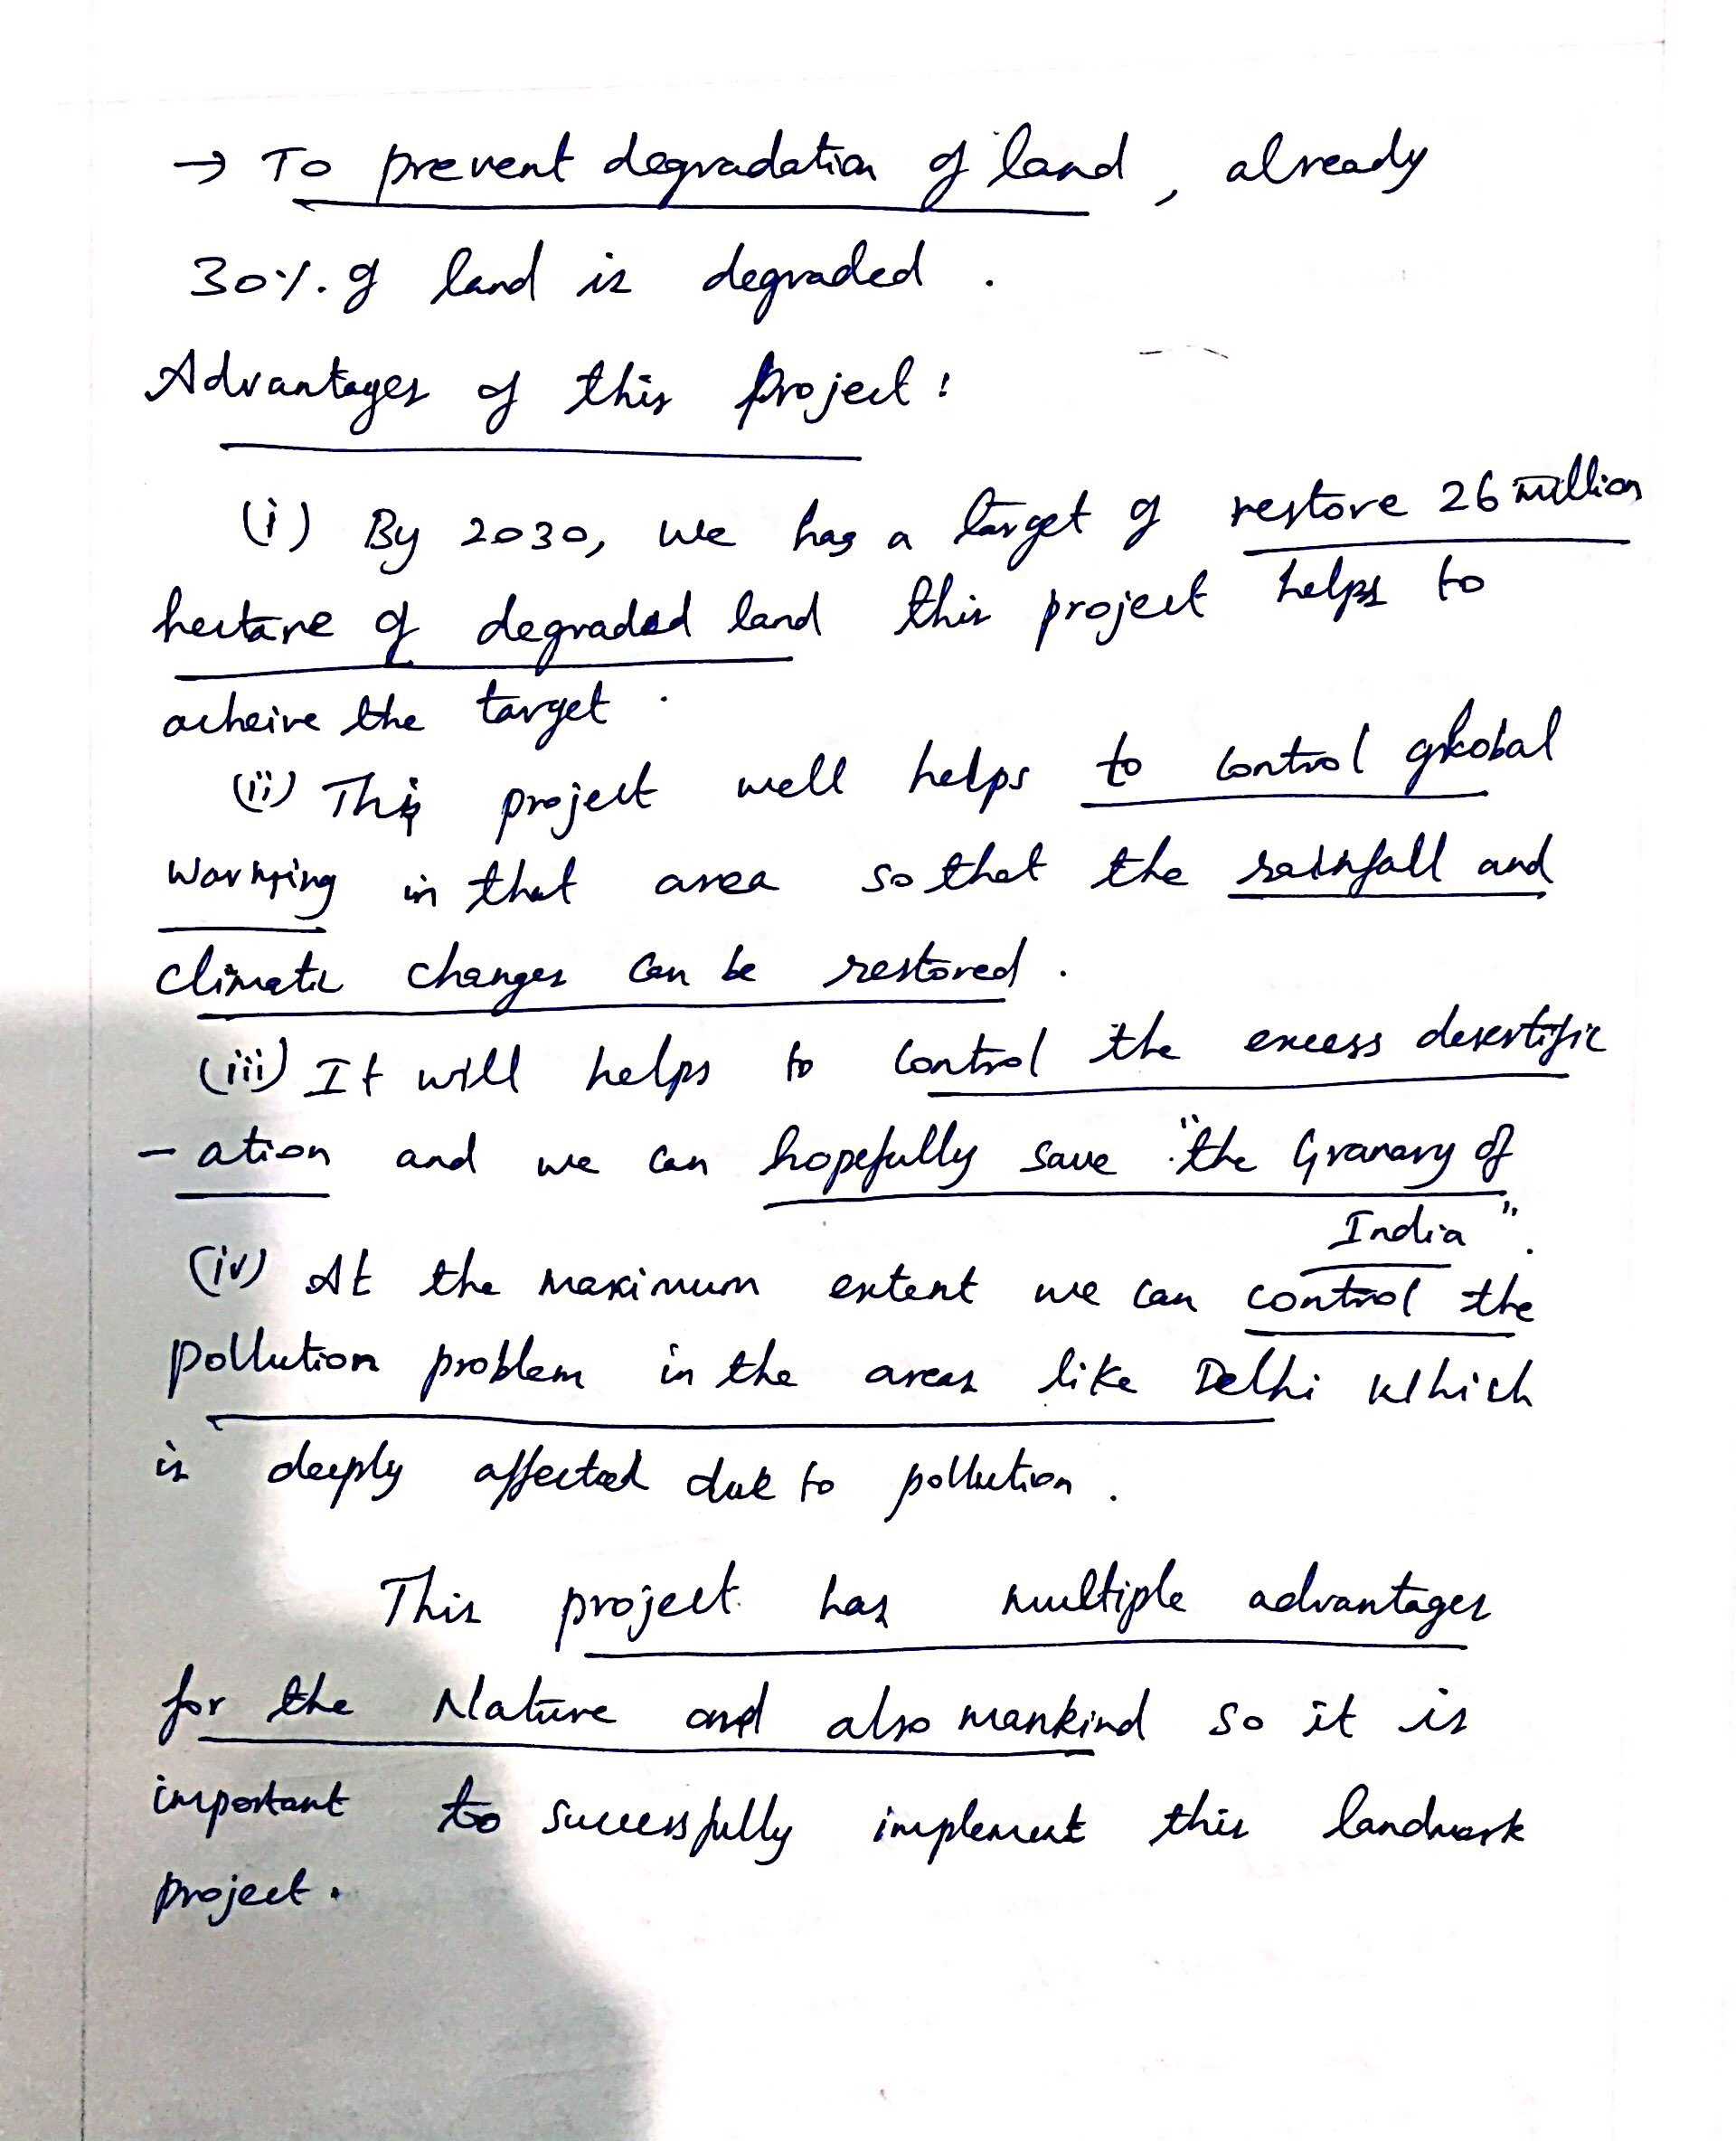 → To prevent degradation of land, already
30% of land is degraded.
Advantages of this project:
(i) By 2030, we has a target of restore 26 million
hectare of degraded land this project helps to
acheive the target.
(ii) This project well helps to control glkobal
warming in that area so that the rainfall and
climatic changes can be restored.
(iii) It will helps to control the excess desertific
- ation and we can hopefully save "the Granary of
India".
(iv) At the maximum extent we can control the
pollution problem in the areas like Delhi which
is deeply affected due to pollution.
This project has multiple advantages
for the Nature and also mankind so it is
important to successfully implement this landmark
project.